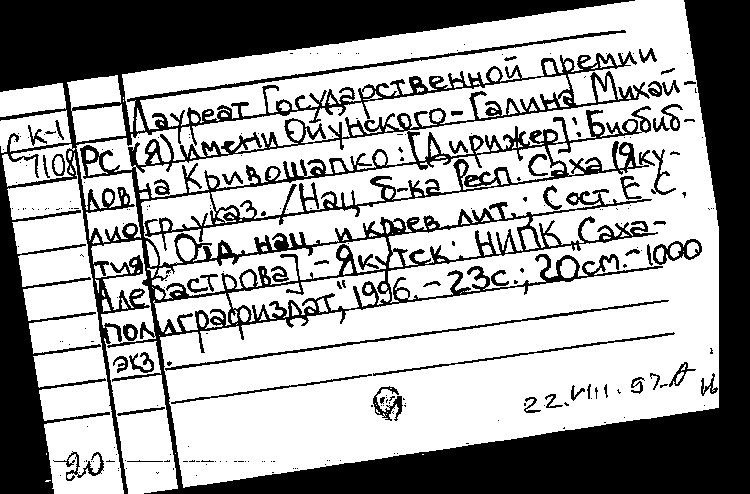 Лауреат Государственной премии
СК-1
7108
РС (Я) имени Ойунского - Галина Михай-
ловна Кривошапко : [Дирижер] : Биобиб-
лиогр. указ. / Нац. б-ка Респ. Саха (Яку-
тия). Отд. нац. и краев. лит. ; Сост. Е.С.
Алебастрова]. - Якутск : НИПК "Саха-
полиграфиздат", 1996. - 23с. ; 20см. - 1000
экз.
22.VIII.97
20